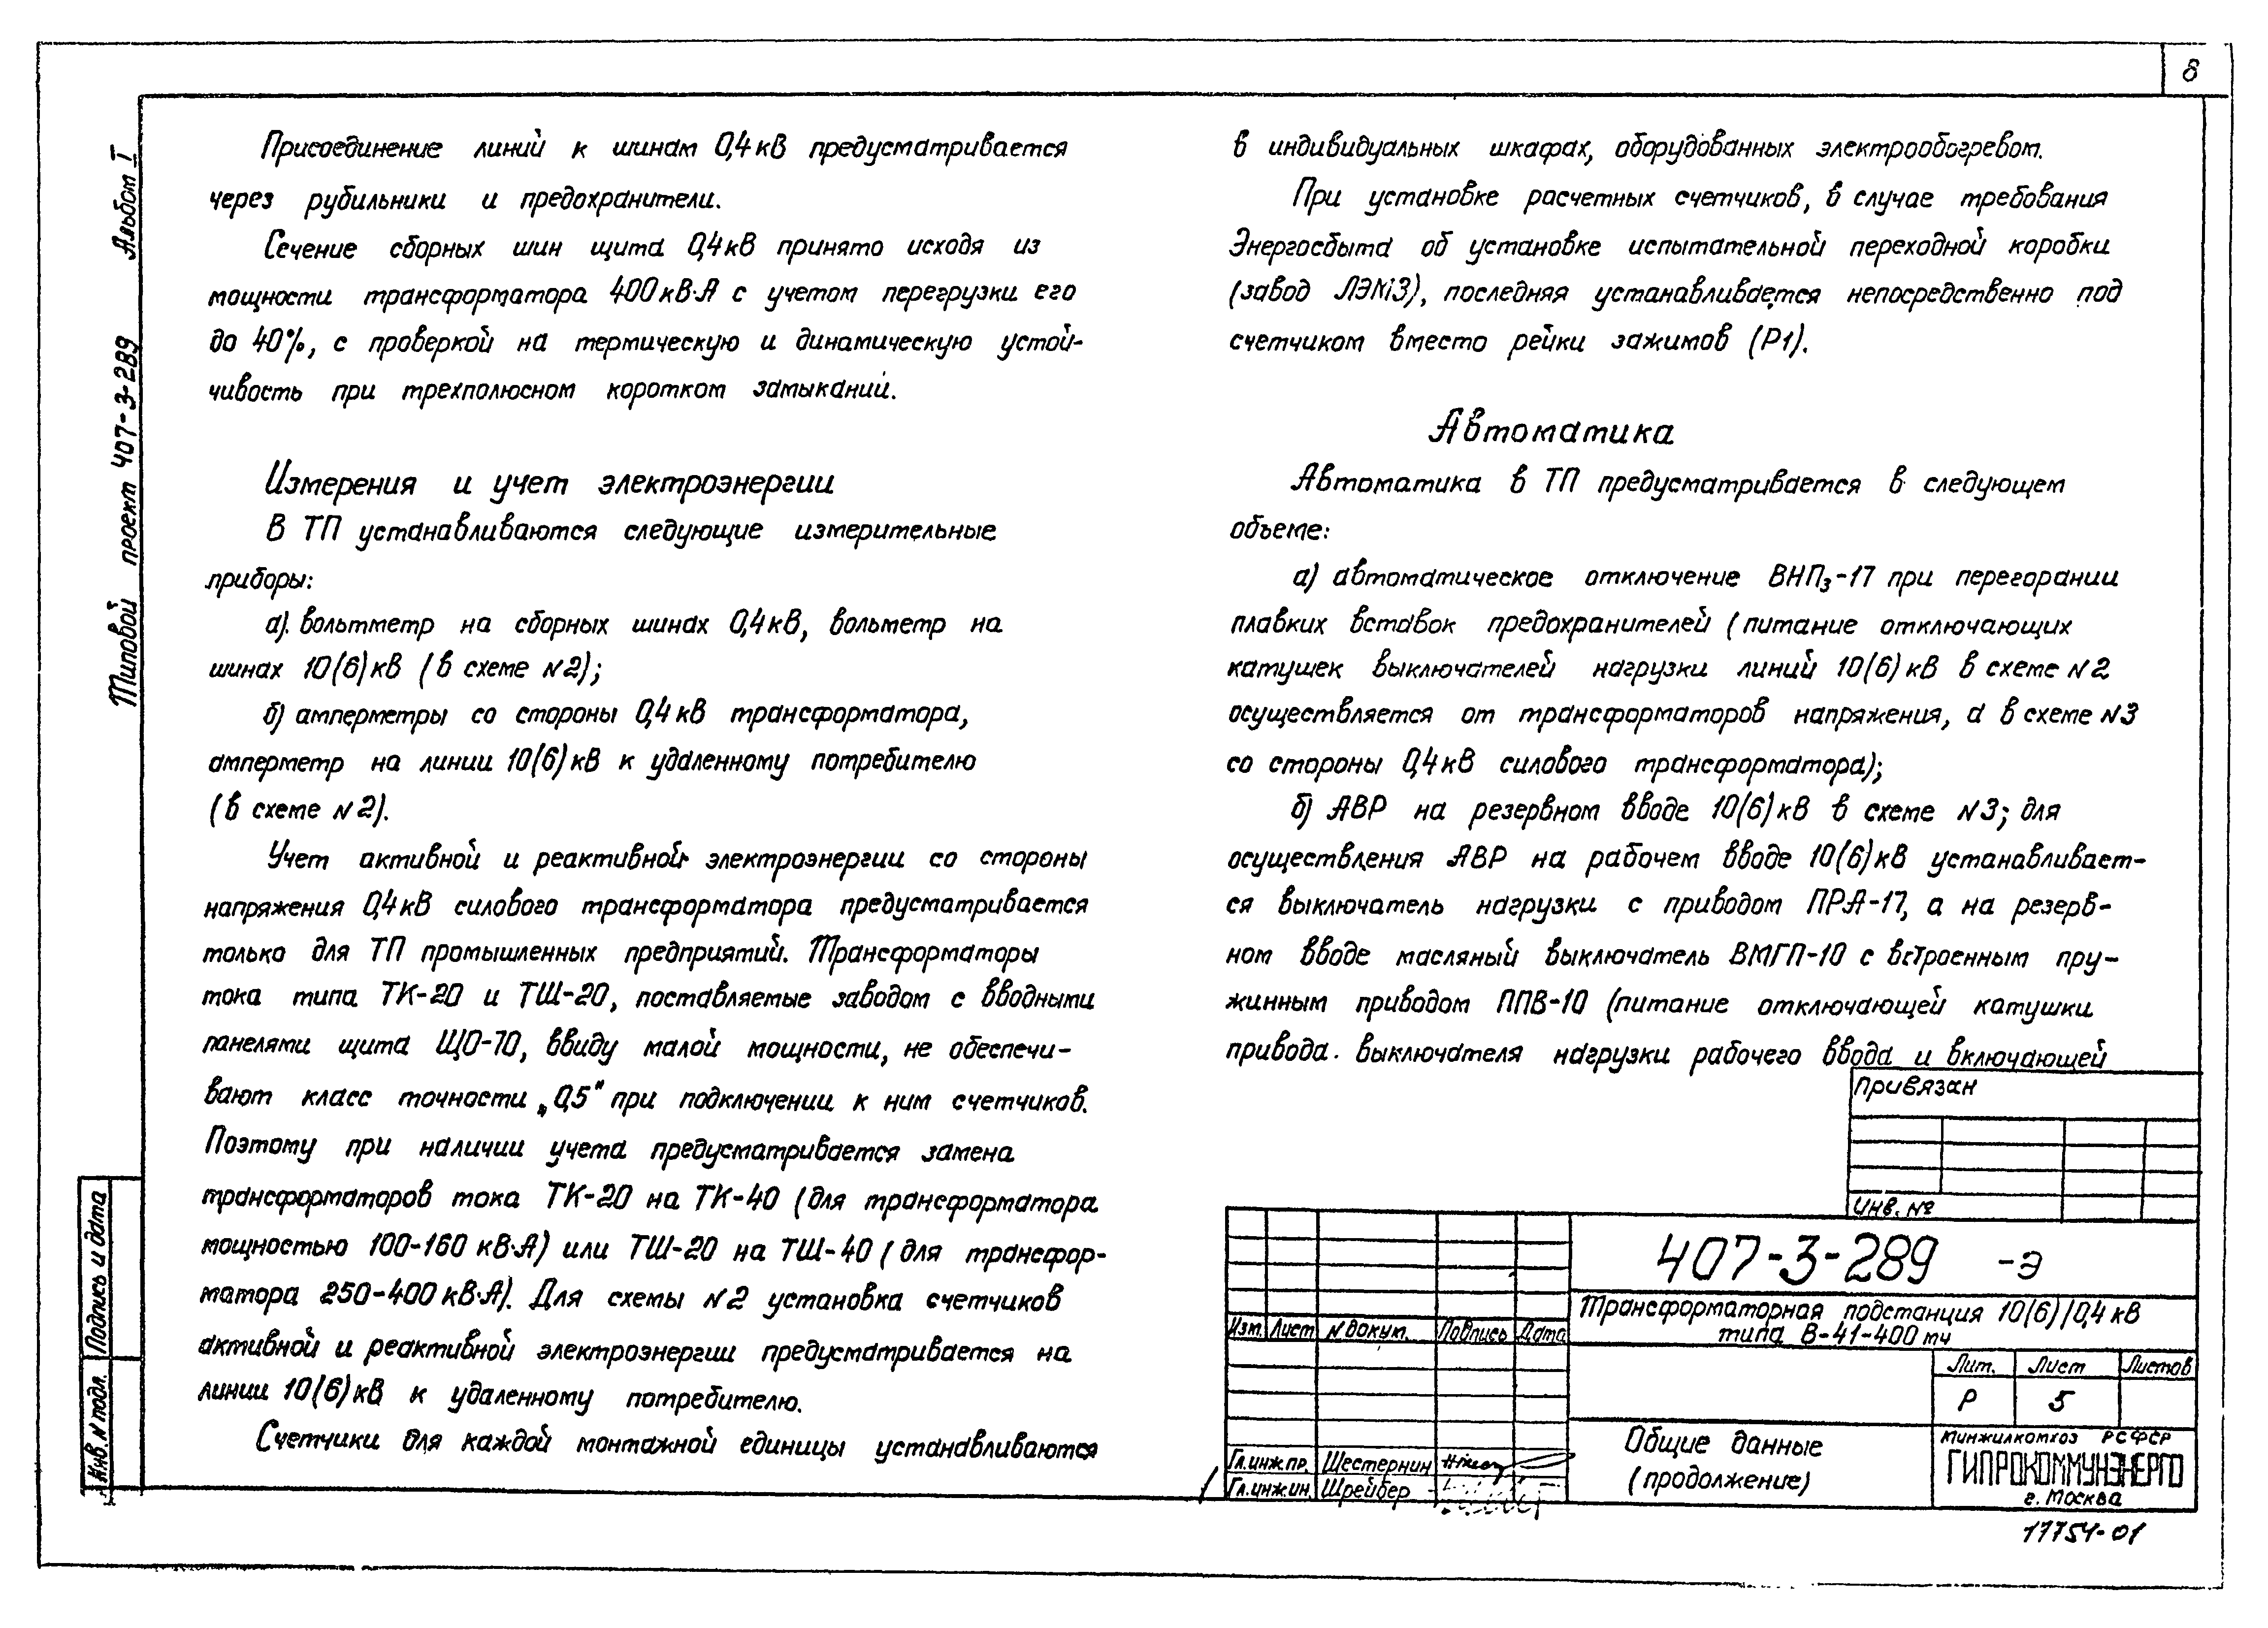 8
Альбом I
Типовой проект 407-3-289
Присоединение линий к шинам 0,4кВ предусматривается
через рубильники и предохранители.
Сечение сборных шин щита 0,4кВ принято исходя из
мощности трансформатора 400кВ·А с учетом перегрузки его
до 40%, с проверкой на термическую и динамическую устой-
чивость при трехполюсном коротком замыкании.
Измерения и учет электроэнергии
В ТП устанавливаются следующие измерительные
приборы:
а). вольтметр на сборных шинах 0,4кВ, вольметр на
шинах 10(6)кВ (в схеме №2);
б) амперметры со стороны 0,4кВ трансформатора,
амперметр на линии 10(6)кВ к удаленному потребителю
(в схеме №2).
Учет активной и реактивной электроэнергии со стороны
напряжения 0,4кВ силового трансформатора предусматривается
только для ТП промышленных предприятий. Трансформаторы
тока типа ТК-20 и ТШ-20, поставляемые заводом с вводными
панелями щита ЩО-70, ввиду малой мощности, не обеспечи-
вают класс точности „0,5" при подключении к ним счетчиков.
Поэтому при наличии учета предусматривается замена
трансформаторов тока ТК-20 на ТК-40 (для трансформатора
мощностью 100-160 кВ·А) или ТШ-20 на ТШ-40 (для трансфор-
матора 250-400кВ·А). Для схемы №2 установка счетчиков
активной и реактивной электроэнергии предусматривается на
линии 10(6)кВ к удаленному потребителю.
Счетчики для каждой монтажной единицы устанавливаются
в индивидуальных шкафах, оборудованных электрообогревом.
При установке расчетных счетчиков, в случае требования
Энергосбыта об установке испытательной переходной коробки
(завод ЛЭМЗ), последняя устанавливается непосредственно под
счетчиком вместо рейки зажимов (Р1).
Автоматика
Автоматика в ТП предусматривается в следующем
объеме:
а) автоматическое отключение ВНПз-17 при перегорании
плавких вставок предохранителей (питание отключающих
катушек выключателей нагрузки линий 10(6)кВ в схеме №2
осуществляется от трансформаторов напряжения, а в схеме №3
со стороны 0,4кВ силового трансформатора);
б) АВР на резервном вводе 10(6)кВ в схеме №3; для
осуществления АВР на рабочем вводе 10(6)кВ устанавливает-
ся выключатель нагрузки с приводом ПРА-17, а на резерв-
ном вводе масляный выключатель ВМГП-10 с встроенным пру-
жинным приводом ППВ-10 (питание отключающей катушки
привода. выключателя нагрузки рабочего ввода и включающей
Привязан
Инв. №
407-3-289 -Э
Трансформаторная подстанция 10(6)/0,4 кВ
типа В-41-400 тч
Изм. Лист № докум. Подпись Дата
Лит. Лист Листов
Р 5
Общие данные
(продолжение)
Минжилкомхоз РСФСР
ГИПРОКОММУНЭНЕРГО
г. Москва
Гл.инж.пр. Шестернин
Гл.инж.ин. Шрейбер
17754-01
Подпись и дата
Инв. № подл.